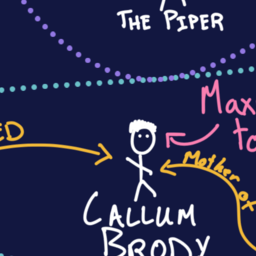 THE PIPER
Max
to
ED
Mother of
CALLUM
BRODY